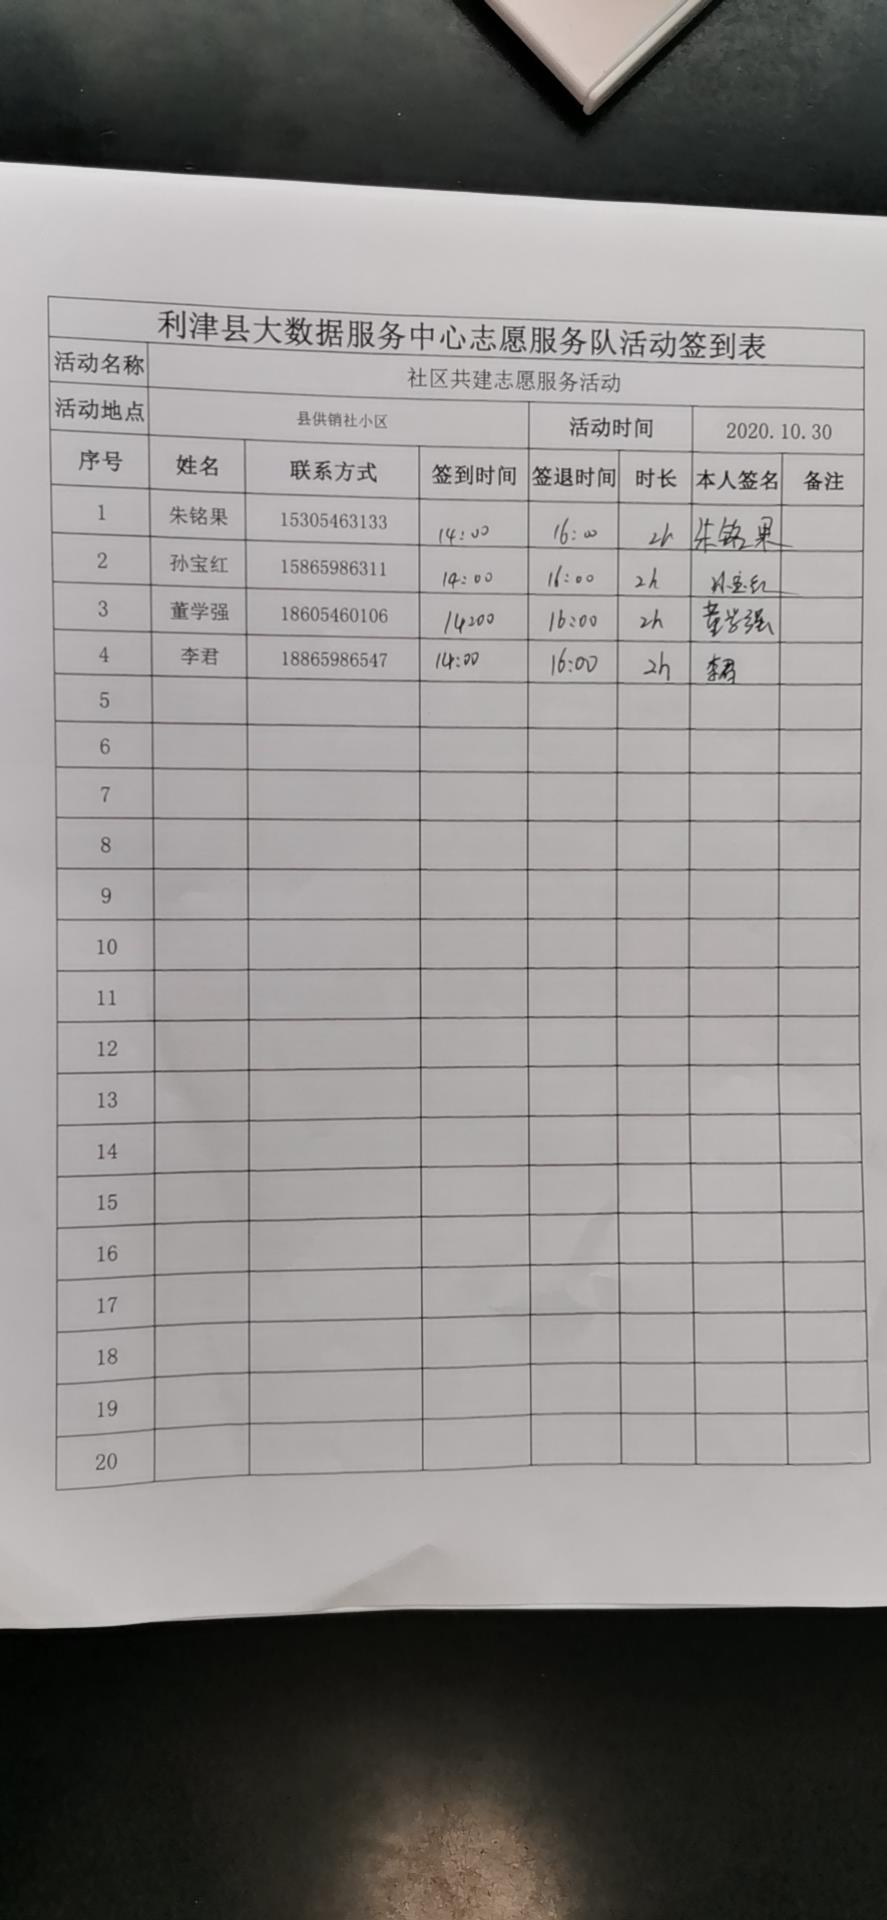 利津县大数据服务中心志愿服务队活动签到表
活动名称 社区共建志愿服务活动
活动地点 县供销社小区 活动时间 2020.10.30
序号 姓名 联系方式 签到时间 签退时间 时长 本人签名 备注
1 朱铭果 15305463133 14:00 16:00 2h 朱铭果
2 孙宝红 15865986311 14:00 16:00 2h 孙宝红
3 董学强 18605460106 14:00 16:00 2h 董学强
4 李君 18865986547 14:00 16:00 2h 李君
5
6
7
8
9
10
11
12
13
14
15
16
17
18
19
20